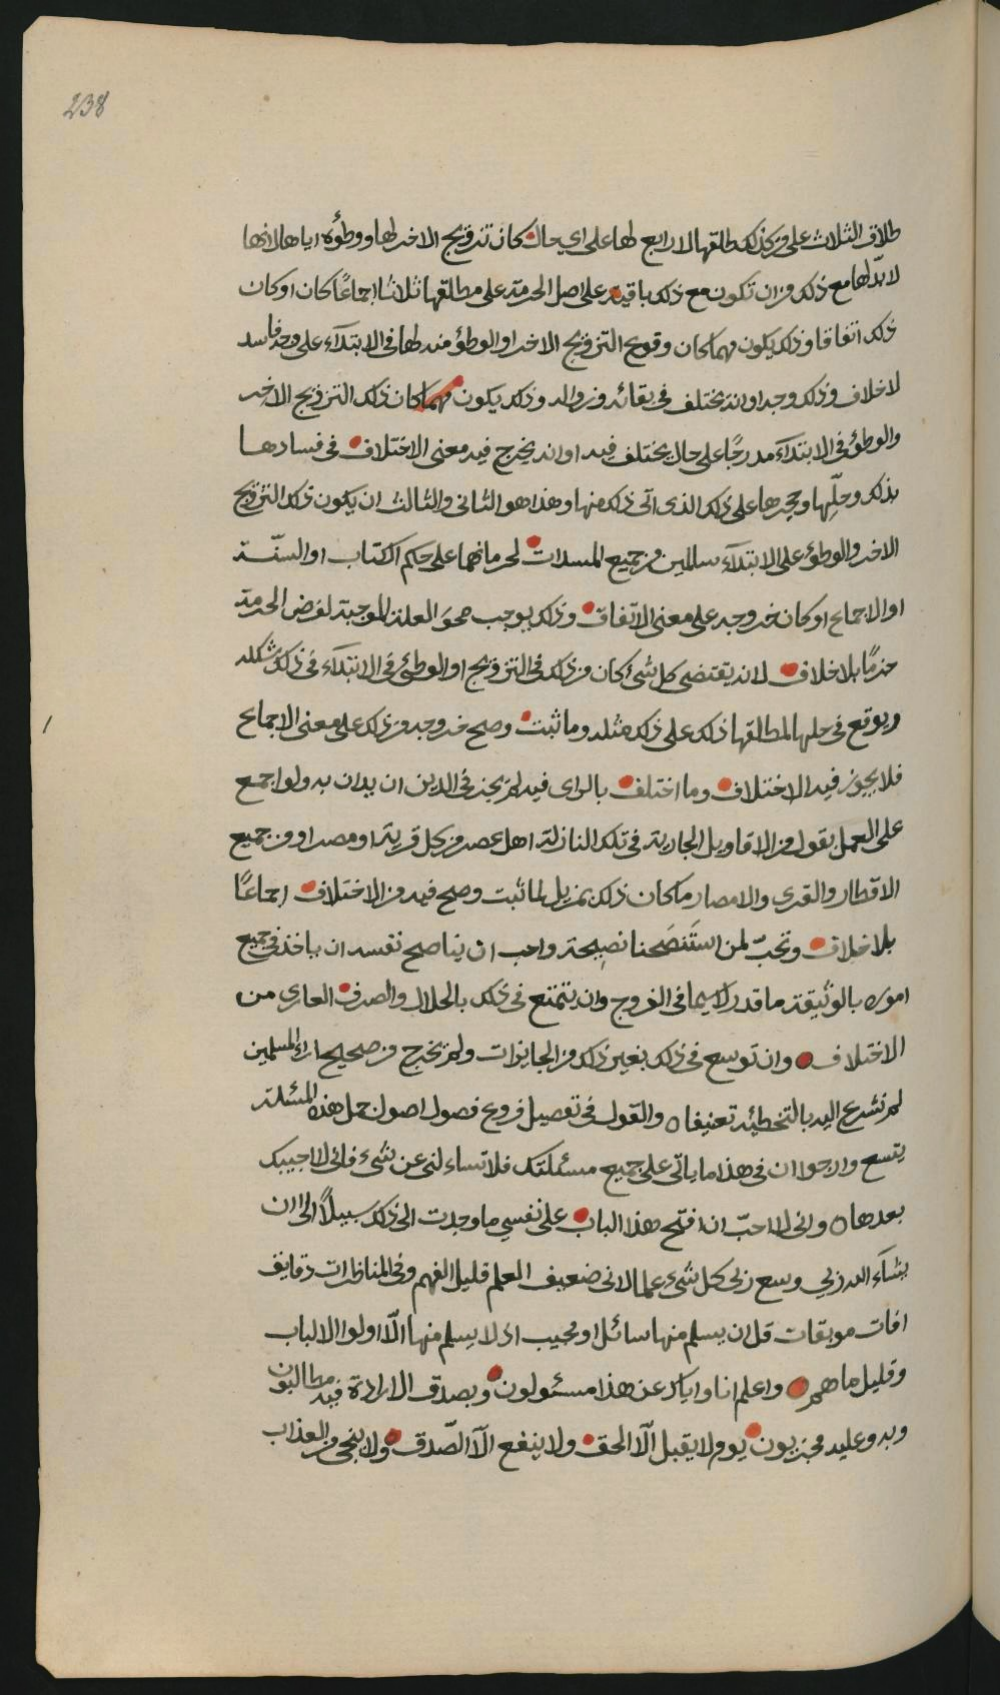 238
طلاق الثلاث على وكذلك مطالقها لا رابع لها على اي حال كان تزويج الاخر لها ووطؤه اياها لانها
لا بدّ لها مع ذلك من ان تكون مع ذلك باقية على اصل الحرمة على مطلقها ثلاثا اجماعًا كان او كان
ذلك اتفاقا وذلك يكون مهما كان وقوع التزويج الاخر او الوطؤ منه لها في الابتدآء على وجه فاسد
لا خلاف وذلك وجه او انه يختلف في بقائه وزواله وذلك يكون مهما كان ذلك التزويج الاخر
والوطؤ في الابتدآء مدرجًا على حال يختلف فيه او انه يخرج فيه معنى الاختلاف في فسادها
بذلك وحلّها وحجرها على ذلك الذى اتى ذلك منها وهذا هو الثانى والثالث ان يكون ذلك التزويج
الاخر والوطؤ على الابتدآء سالمين من جميع المسدات لحرمانهما على حكم الكتاب او السنّة
او الاجماع او كان خروجه على معنى الاتفاق وذلك يوجب محوَ العلة الموجبة لفرض الحرمة
حزمًا بلا خلاف لانه يقتضى كل شئ كان من ذلك في التزويج او الوطئ في الابتدآء في ذلك شكله
ويوقع في حلها لمطالقها ذلك على ذلك مثله وما ثبت وصح خروجه من ذلك على معنى الاجماع
فلا يجوز فيه الاختلاف وما اختلف بالراى فيه لم يجز في الدين ان يدان به ولو اجمع
على العمل بقول من الاقاويل الجارية في تلك النازلة اهل عصر من كل قرية او مصر او من جميع
الاقطار والقرى والامصار ما كان ذلك بمزيل لما ثبت وصح فيه من الاختلاف اجماعًا
بلا خلاف وتحبّ لمن استَنصَحنا نصِيحة واحب ان يناصح نفسه ان ياخذ في جميع
اموره بالوثيقة ما قدر لا سيما في الفروج وان يتمتع في ذلك بالحلال والصرف العارى من
الاختلاف وان توسع في ذلك بغير ذلك من الجايزات ولم يخرج من صحيح اراء المسلمين
لم نشرع اليه بالتخطئه تعنيفا ٥ والقول في تفصيل فروع فصول اصول جمل هذه المسئلة
يتسع وارجوا ان في هذا ما ياتى على جميع مسئلتك فلا تساءلنى عن شىء فانى لا اجيبك
بعدها ٥ وانى لا احبّ ان افتح هذا الباب على نفسي ما وجدت الى ذلك سبيلاً الى ان
يشآء الله ربي وسع ربى كل شىء علما لانى ضعيف العلم قليل الفهم وفى المناظرات دقايق
افات موبقات قل ان يسلم منها سائل او مجيب اذ لا يسلم منها الّا اولوا الالباب
وقليل ما هم واعلم انا واياك عن هذا مسئولون وبصدق الارادة فيه مطالبون
وبه وعليه مجزيون يوم لا يقبل الّا الحق ولا ينفع الّا الصّدق ولا ينجى من العذاب